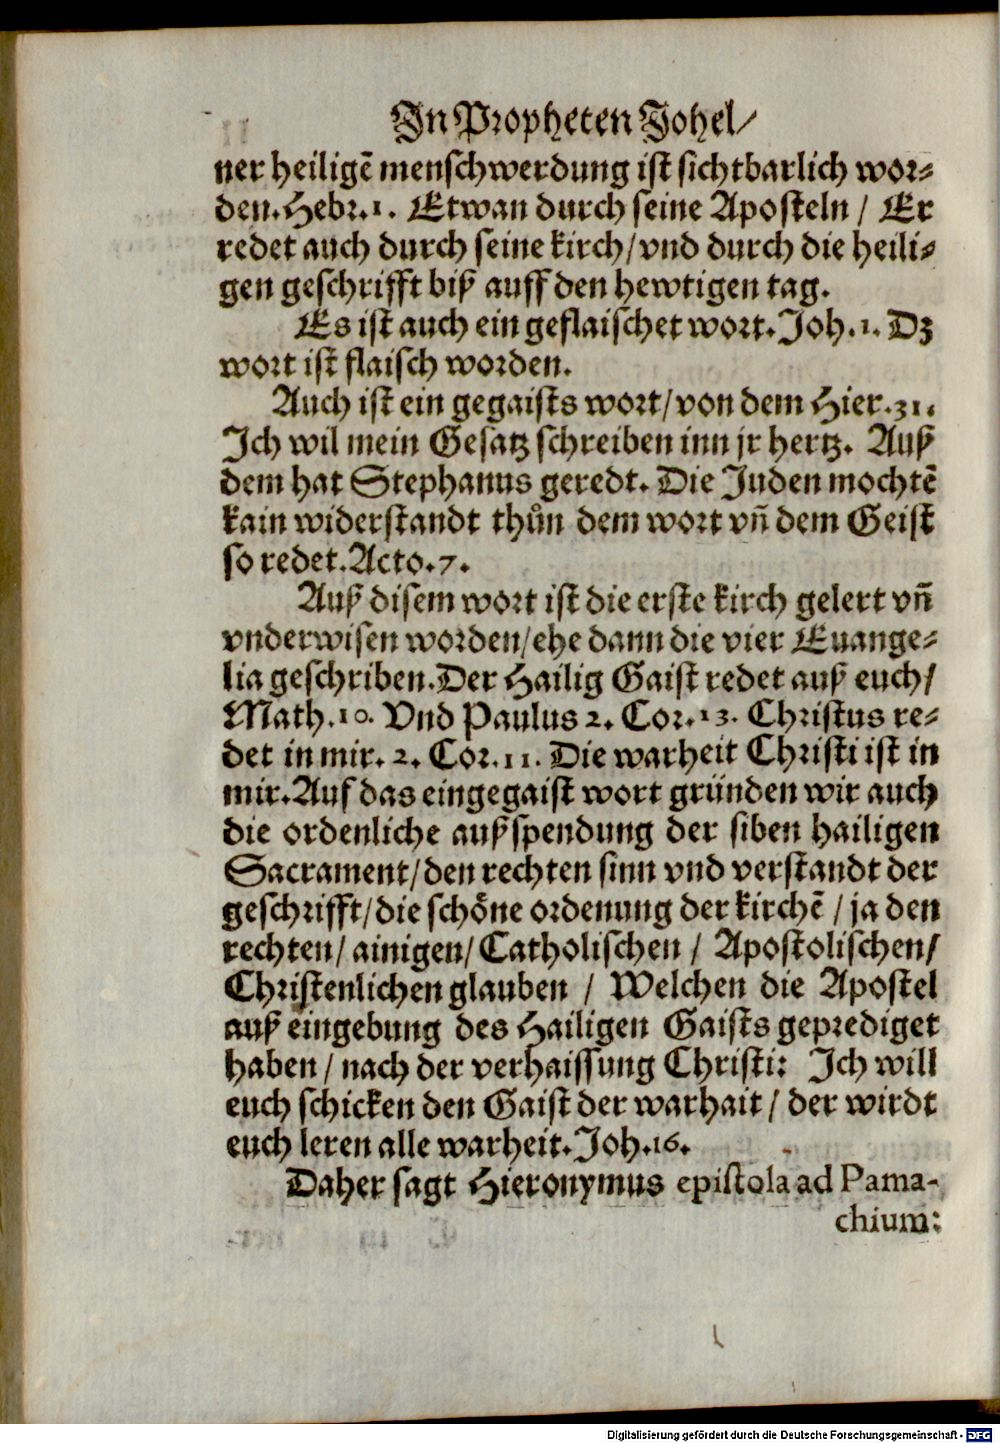 In Propheten Johel/
ner heiligẽ menschwerdung ist sichtbarlich wor⸗
den. Hebr. 1. Etwan durch seine Aposteln / Er
redet auch durch seine kirch/ vnd durch die heili⸗
gen geschrifft biß auff den hewtigen tag.
Es ist auch ein geflaischet wort. Joh. 1. Dz
wort ist flaisch worden.
Auch ist ein gegaists wort/ von dem Hier. 31.
Ich wil mein Gesatz schreiben inn jr hertz. Auß
dem hat Stephanus geredt. Die Juden mochtẽ
kain widerstandt thůn dem wort vñ dem Geist
so redet. Acto. 7.
Auß disem wort ist die erste kirch gelert vñ
vnderwisen worden/ ehe dann die vier Euange⸗
lia geschriben. Der Hailig Gaist redet auß euch/
Math. 10. Vnd Paulus 2. Cor. 13. Christus re⸗
det in mir. 2. Cor. 11. Die warheit Christi ist in
mir. Auf das eingegaist wort gründen wir auch
die ordenliche außspendung der siben hailigen
Sacrament/ den rechten sinn vnd verstandt der
geschrifft/ die schöne ordenung der kirchẽ / ja den
rechten/ ainigen/ Catholischen / Apostolischen/
Christenlichen glauben / Welchen die Apostel
auß eingebung des Hailigen Gaists geprediget
haben / nach der verhaissung Christi: Ich will
euch schicken den Gaist der warhait / der wirdt
euch leren alle warheit. Joh. 16.
Daher sagt Hieronymus epistola ad Pama-
chium:
Digitalisierung gefördert durch die Deutsche Forschungsgemeinschaft - DFG